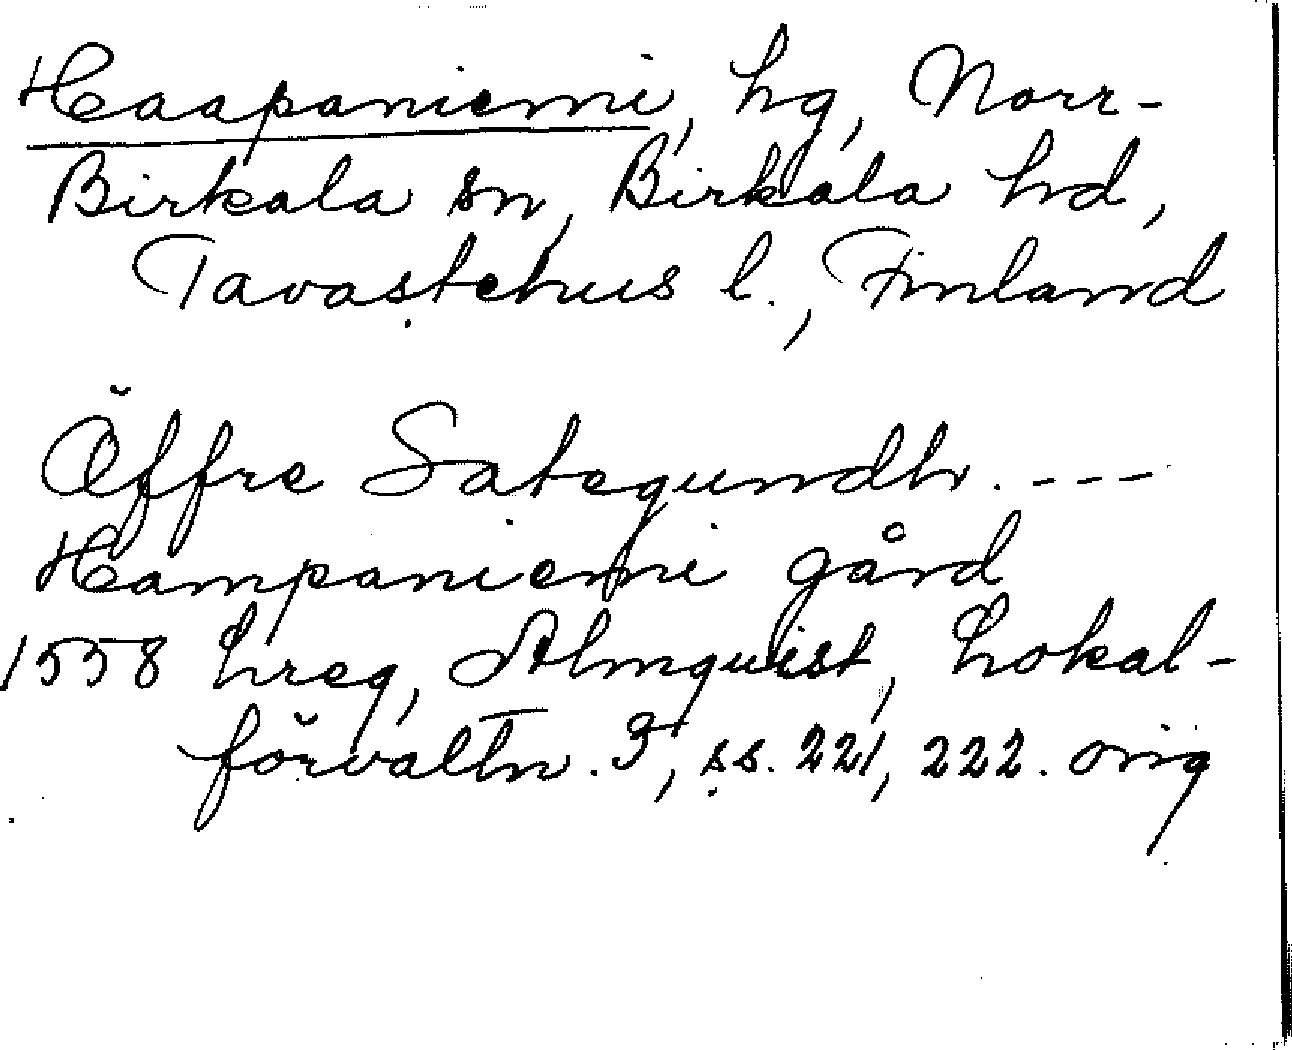 Haapaniemi, hg, Norr-
Birkala sn, Birkala hd,
Tavastehus l., Finland
Öffre Sategundh. ---
Hampaniemi gård
1558 hreg, Almquist, Lokal-
förvaltn. 3, ss. 221, 222. orig